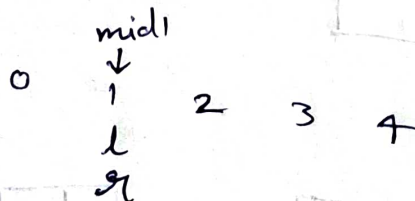 mid1
↓
0 1 2 3 4
l
r